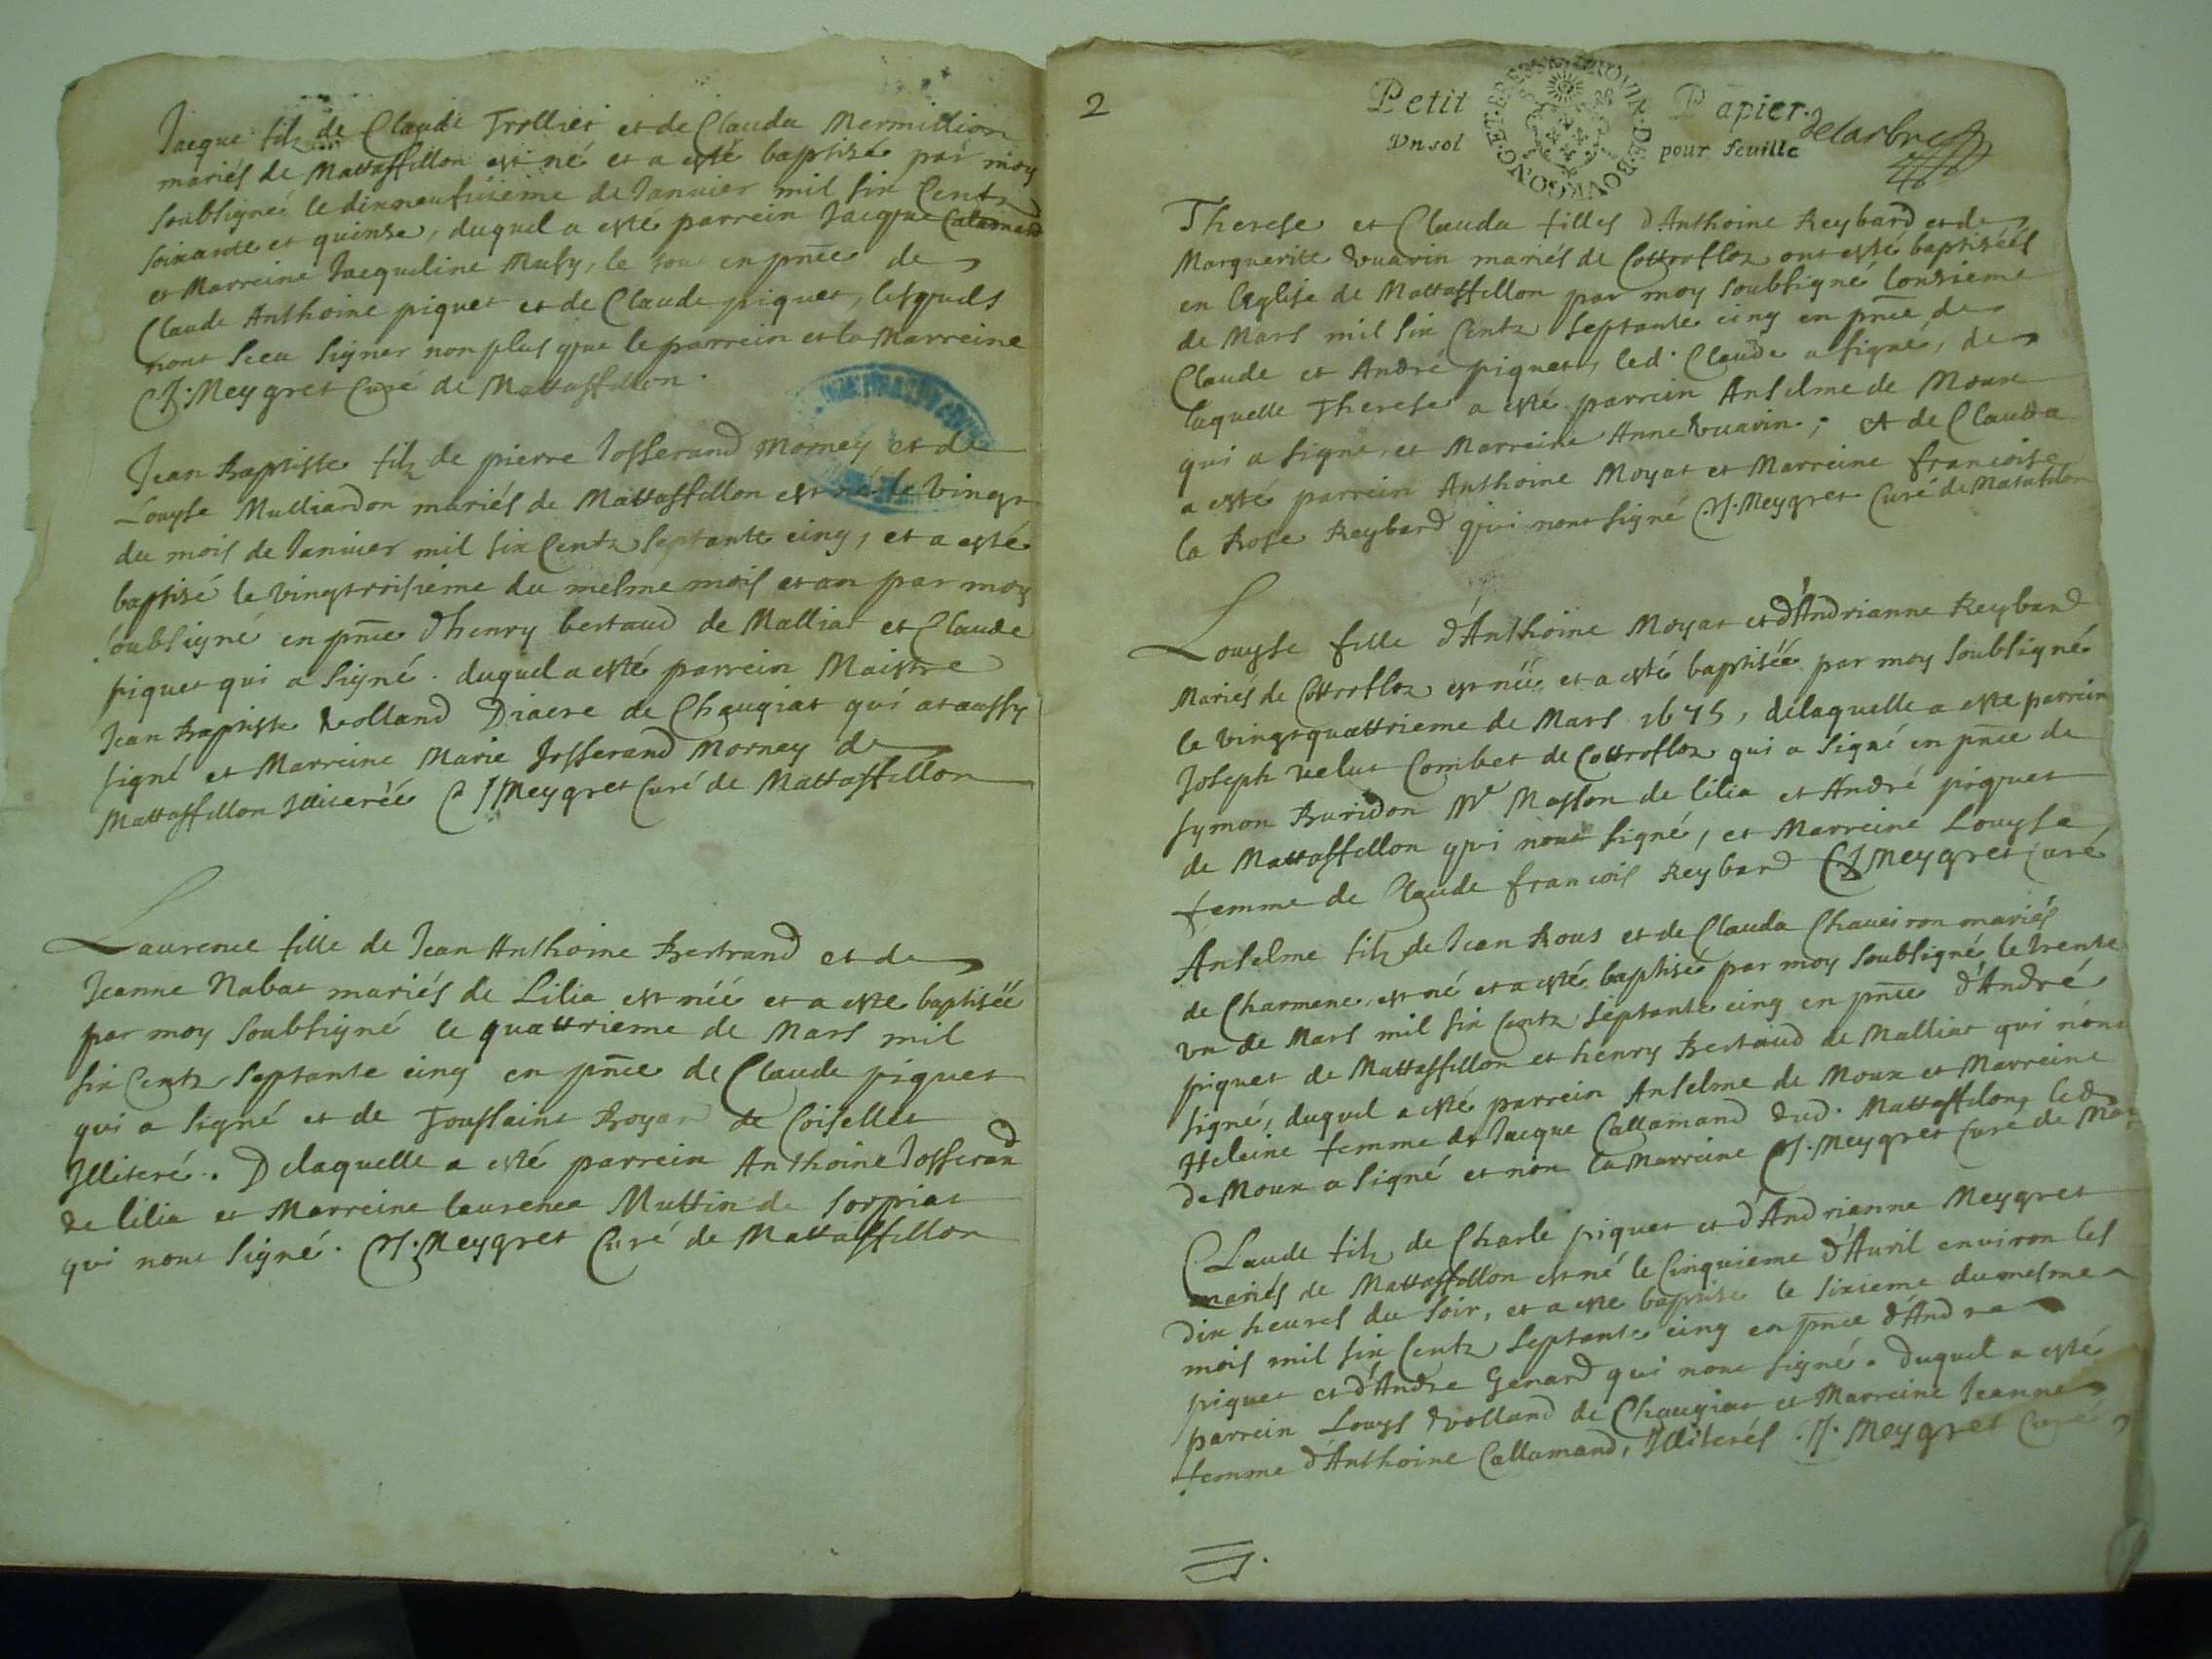 Jacque filz de Claude Trollier et de Clauda Mermillion
mariés de Mattaffellon est né et a esté baptizé par moy
soubsigné le dixneufuieme de Januier mil six Centz
soixante et quinze, duquel a esté parrein Jacque Calamand
et Marreine Jacqueline Masy, le tout en pnce de
Claude Anthoine piquet et de Claude piquet, lesquels
nont sceu signer non plus que le parrein et la Marreine
C J. Meygret Curé de Mattaffellon.
Jean Baptiste filz de pierre Josserand Morney et de
Louyse Mulliardon mariés de Mattaffellon est né le vingt
du mois de Januier mil six Centz septante cinq, et a esté
baptisé le vingtroisieme du mesme mois et an par moy
soubsigné en pnce dhenry bertaud de Malliat et Claude
piquet qui a signé. duquel a esté parrein Maistre
Jean Baptiste Volland Diacre de Chaugiat qui at aussy
signé et Marreine Marie Josserand Morney de
Mattaffellon Illiterée C J Meygret Curé de Mattaffellon
Laurence fille de Jean Anthoine Bertrand et de
Jeanne Nabat mariés de Lilia est néé et a este baptisée
par moy soubsigné le quattrieme de Mars mil
six Centz septante cinq en pnce de Claude piquet
qui a signé et de Toussaint Royard de Coiselles
Illiteré. Delaquelle a esté parrein Anthoine Josserand
de lilia et Marreine laurence Muttin de sorpiat
qui nont signé. C J. Meygret Curé de Mattaffellon
2
Petit Papier. delarbre
Vn sol pour feuille
PROVIN. DE. BOVRGONG. ET. BRESSE
Therese et Clauda filles d'Anthoine Reybard et de
Marguerite Vuarin mariés de Cottrofloz ont esté baptiséés
en l'eglise de Mattaffellon par moy soubsigné lonzieme
de Mars mil six Centz septante cinq en pnce de
Claude et André piquet, led. Claude a signé, de
laquelle Therese a esté parrein Anselme de Moux
qui a signé, et Marreine Anne Vuarin; et de Clauda
a esté parrein Anthoine Moyat et Marreine francoise
la Rose Reybard qui nont signé C J. Meygret Curé de Matafelon
Louyse fille d'Anthoine Moyat et d'Andrianne Reybard
Mariés de Cottrofloz est néé et a esté baptisée par moy soubsigné
le vingtquattrieme de Mars 1675, delaquelle a este parrein
Joseph velut Combet de Cottrofloz qui a signé en pnce de
symon Buridon Mᵉ Masson de lilia et André piquet
de Mattaffellon qui nont signé, et Marreine Louyse
femme de Claude francois Reybard C J Meygret Curé
Anselme filz de Jean Rous et de Clauda Chaueiron mariés
de Charmene, est né et a esté baptisé par moy soubsigné le trente
vn de Mars mil six Centz septante cinq en pnce d'André
piquet de Mattaffellon et henry Bertaud de Malliat qui nont
signé, duquel a esté parrein Anselme de Moux et Marreine
Heleine femme de Jacque Callamand dud. Mattaffelon, led
de Moux a signé et non la Marreine C J. Meygret Curé de Mat
Claude filz de Charle piquet et d'Andrianne Meygret
mariés de Mattaffellon est né le Cinquieme d'Auril enuiron les
dix heures du soir, et a este baptise le sixieme du mesme
mois mil six Centz septante cinq en pnce d'Andre
piquet et d'Andre Genard qui nont signé. duquel a esté
parrein Louys Volland de Chaugiat et Marreine Jeanne
femme d'Anthoine Callamand, Illiterés. J. Meygret Curé